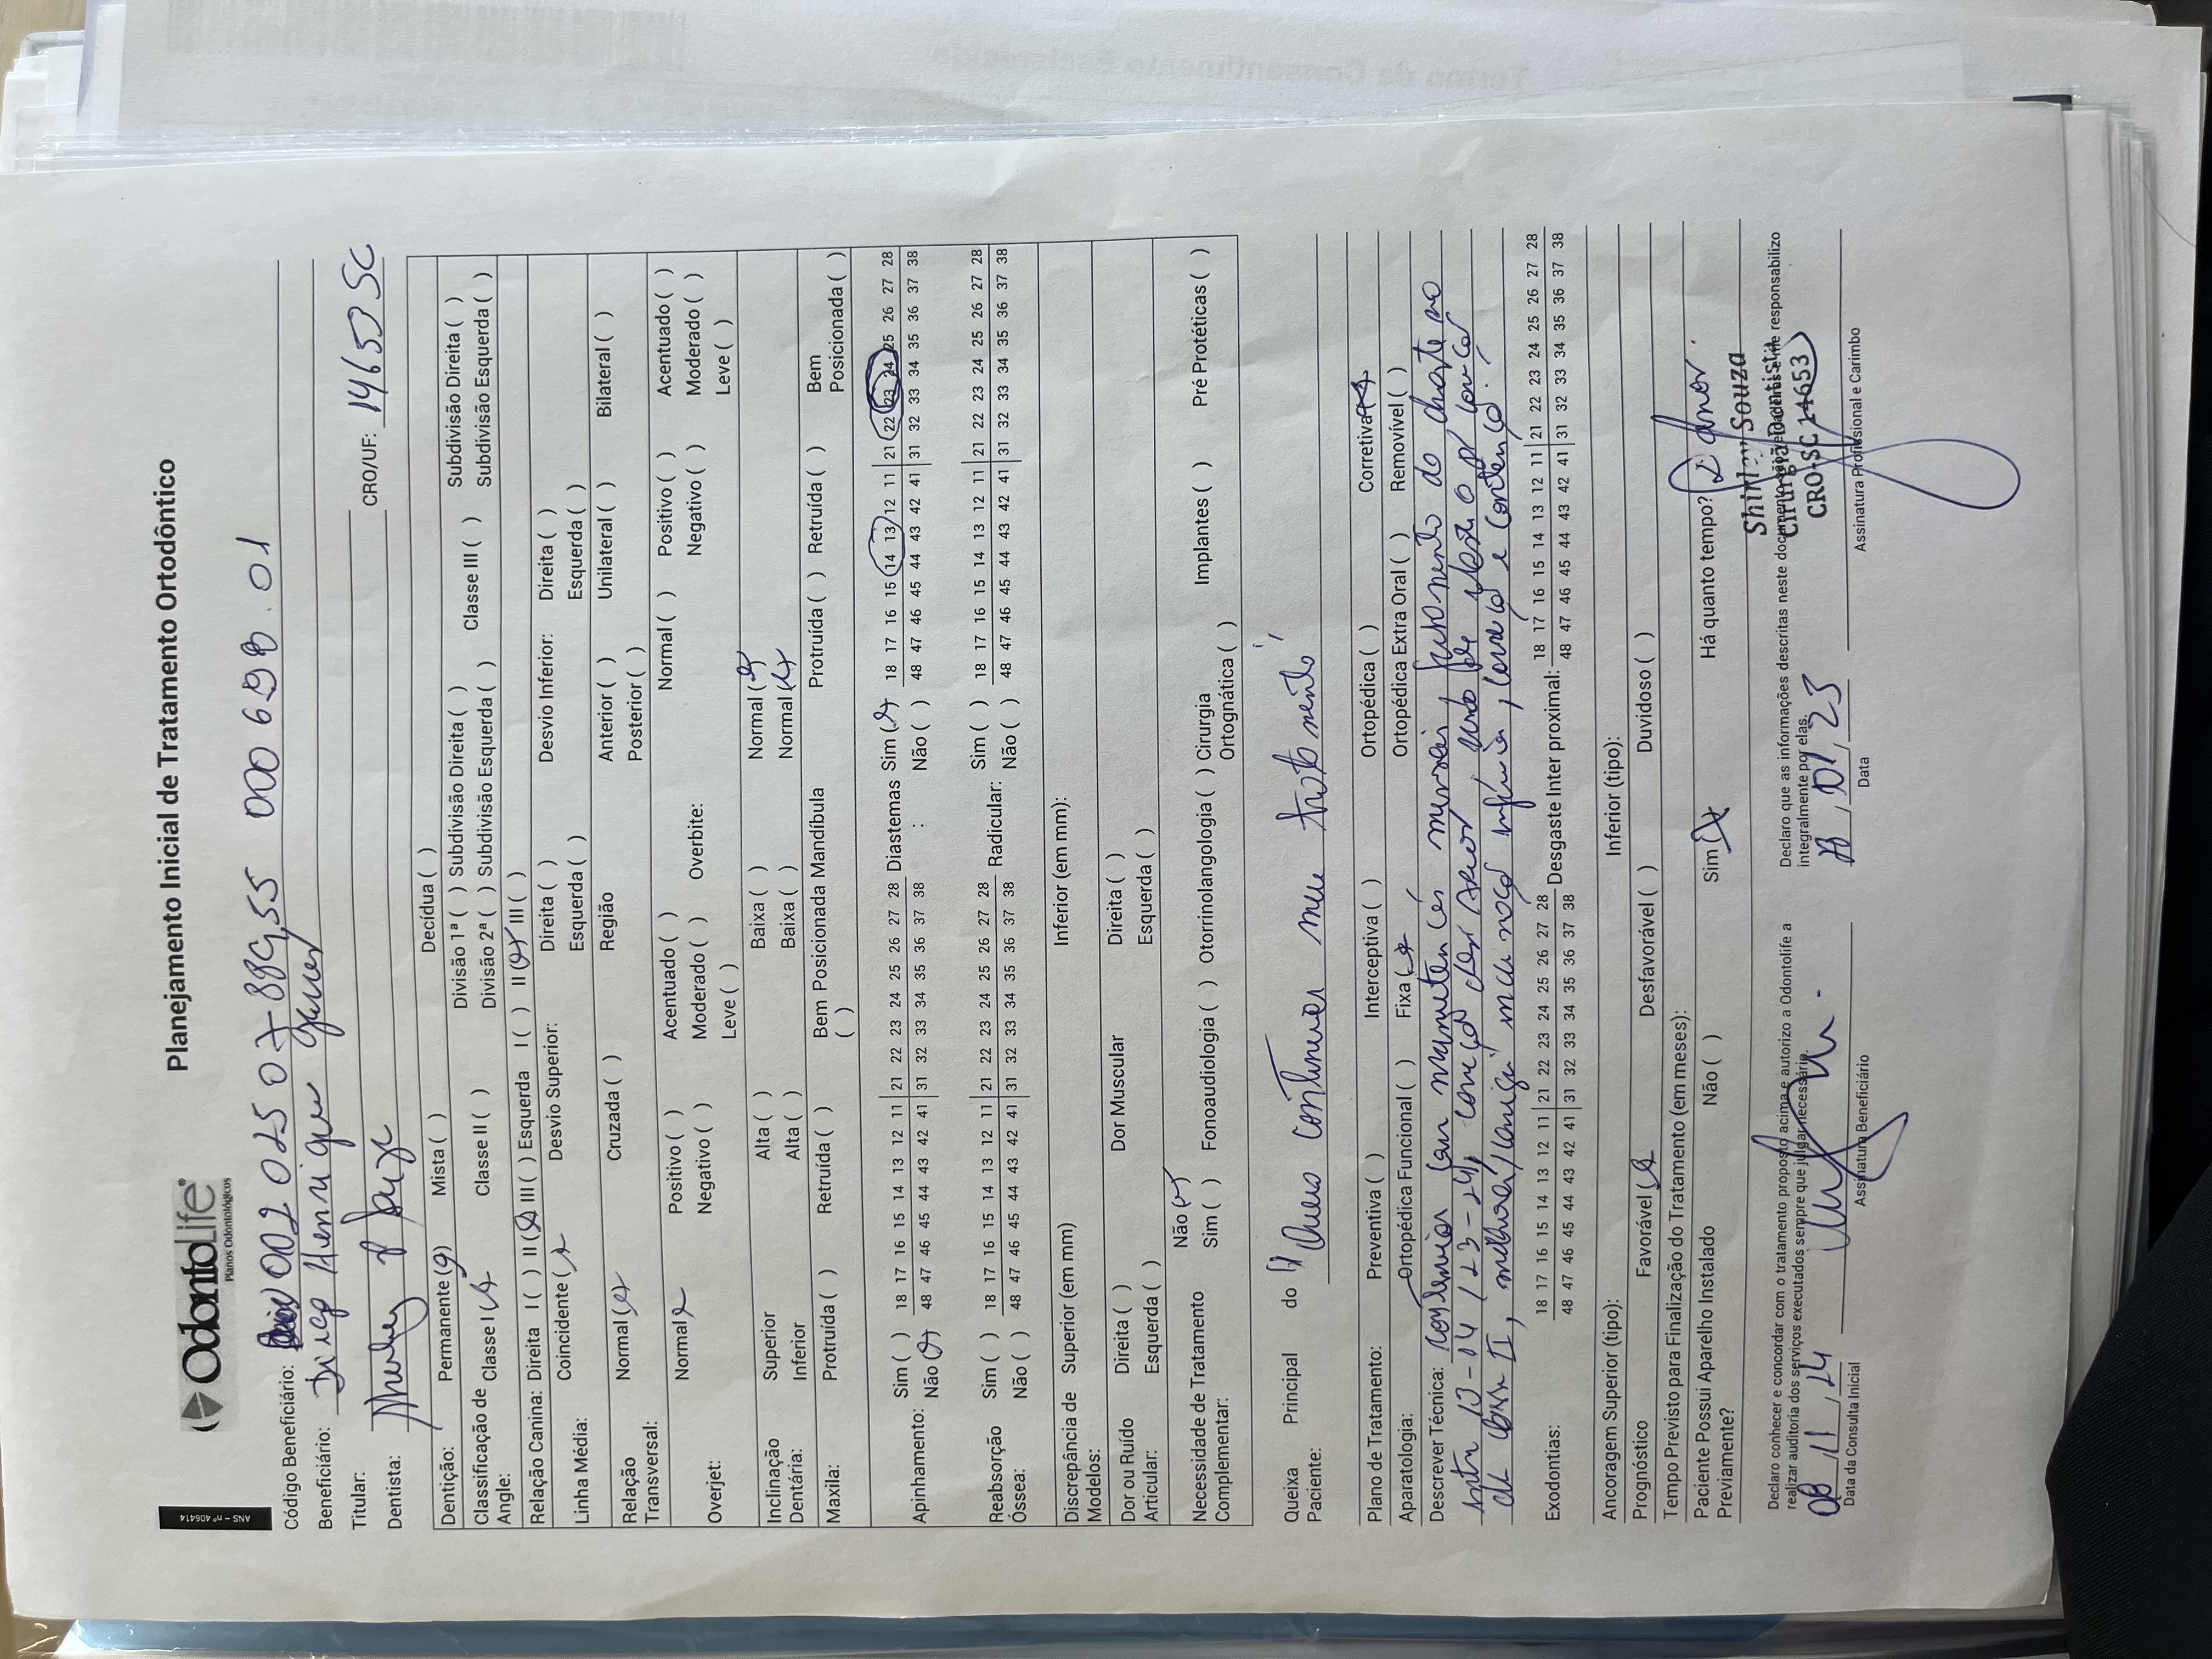 ANS - nº 406414
OdontoLife®
Planos Odontológicos
Planejamento Inicial de Tratamento Ortodôntico
Código Beneficiário: 002 025 07889,55 000 698.01
Beneficiário: Diego Henrique
Titular:
Dentista: Shirley Souza CRO/UF: 14653 SC
Dentição: Permanente (x) Mista ( ) Decídua ( )
Classificação de Angle: Classe I (x) Classe II ( ) Divisão 1ª ( ) Subdivisão Direita ( ) Classe III ( ) Subdivisão Direita ( )
Divisão 2ª ( ) Subdivisão Esquerda ( ) Subdivisão Esquerda ( )
Relação Canina: Direita I ( ) II (x) III ( ) Esquerda I ( ) II (x) III ( )
Linha Média: Coincidente (x) Desvio Superior: Direita ( ) Desvio Inferior: Direita ( )
Esquerda ( ) Esquerda ( )
Relação Transversal: Normal (x) Cruzada ( ) Região Anterior ( ) Unilateral ( ) Bilateral ( )
Posterior ( )
Overjet: Normal x Positivo ( ) Acentuado ( ) Overbite: Normal ( ) Positivo ( ) Acentuado ( )
Negativo ( ) Moderado ( ) Negativo ( ) Moderado ( )
Leve ( ) Leve ( )
Inclinação Dentária: Superior Alta ( ) Baixa ( ) Normal (x)
Inferior Alta ( ) Baixa ( ) Normal (x)
Maxila: Protruída ( ) Retruída ( ) Bem Posicionada ( ) Mandíbula Protruída ( ) Retruída ( ) Bem Posicionada ( )
Apinhamento: Sim ( ) 18 17 16 15 14 13 12 11 | 21 22 23 24 25 26 27 28 Diastemas : Sim (x) 18 17 16 15 14 13 12 11 | 21 22 23 24 25 26 27 28
Não (x) 48 47 46 45 44 43 42 41 | 31 32 33 34 35 36 37 38 Não ( ) 48 47 46 45 44 43 42 41 | 31 32 33 34 35 36 37 38
Reabsorção Óssea: Sim ( ) 18 17 16 15 14 13 12 11 | 21 22 23 24 25 26 27 28 Radicular: Sim ( ) 18 17 16 15 14 13 12 11 | 21 22 23 24 25 26 27 28
Não ( ) 48 47 46 45 44 43 42 41 | 31 32 33 34 35 36 37 38 Não ( ) 48 47 46 45 44 43 42 41 | 31 32 33 34 35 36 37 38
Discrepância de Modelos: Superior (em mm) Inferior (em mm):
Dor ou Ruído Articular: Direita ( ) Dor Muscular Direita ( )
Esquerda ( ) Esquerda ( )
Necessidade de Tratamento Complementar: Não (x)
Sim ( ) Fonoaudiologia ( ) Otorrinolangologia ( ) Cirurgia Ortognática ( ) Implantes ( ) Pré Protéticas ( )
Queixa Principal do Paciente: "Quero continuar meu tratamento"
Plano de Tratamento: Preventiva ( ) Interceptiva ( ) Ortopédica ( ) Corretiva (x)
Aparatologia: Ortopédica Funcional ( ) Fixa (x) Ortopédica Extra Oral ( ) Removível ( )
Descrever Técnica: mensais, fechamento do
13-14 / 23-24,
II, melhorar e contenção.
Exodontias: 18 17 16 15 14 13 12 11 | 21 22 23 24 25 26 27 28 Desgaste Inter proximal: 18 17 16 15 14 13 12 11 | 21 22 23 24 25 26 27 28
48 47 46 45 44 43 42 41 | 31 32 33 34 35 36 37 38 48 47 46 45 44 43 42 41 | 31 32 33 34 35 36 37 38
Ancoragem Superior (tipo): Inferior (tipo):
Prognóstico Favorável (x) Desfavorável ( ) Duvidoso ( )
Tempo Previsto para Finalização do Tratamento (em meses):
Paciente Possui Aparelho Instalado Previamente? Não ( ) Sim (x) Há quanto tempo? 2 anos.
Declaro conhecer e concordar com o tratamento proposto acima e autorizo a Odontolife a realizar auditoria dos serviços executados sempre que julgar necessário.
Declaro que as informações descritas neste documento são verdadeiras e me responsabilizo integralmente por elas.
Shirley Souza
Cirurgiã Dentista
CRO-SC 14653
08/11/24
Data da Consulta Inicial
Assinatura Beneficiário
/01/23
Data
Assinatura Profissional e Carimbo
Termo de Consentimento Esclarecido